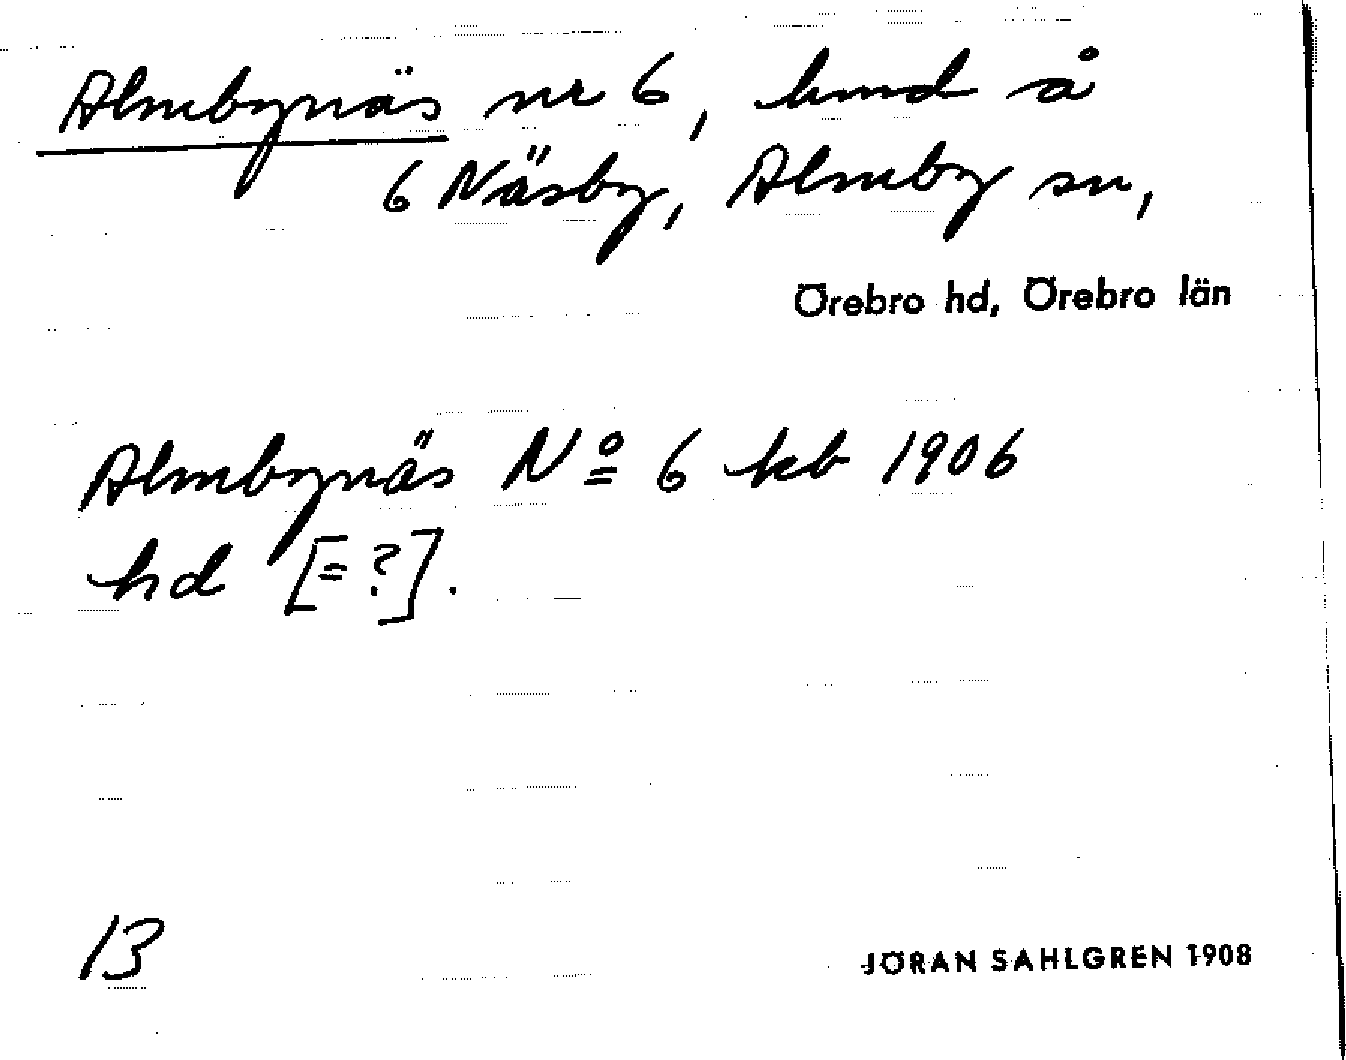 Almbynäs nr 6, hmd å
6 Näsby, Almby sn,
Örebro hd, Örebro län
Almbynäs Nº 6 kb 1906
hd [=?].
13
JÖRAN SAHLGREN 1908